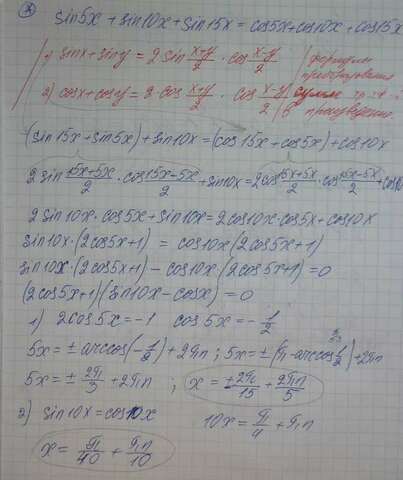 ③ sin5x + sin10x + sin15x = cos5x + cos10x + cos15x
1) sinx + siny = 2 sin (x+y)/2 · cos (x-y)/2 | формулы преобразования
2) cosx + cosy = 2 · cos (x+y)/2 · cos (x-y)/2 | суммы в произведение
(sin15x + sin5x) + sin10x = (cos15x + cos5x) + cos10x
2 sin (15x+5x)/2 · cos (15x-5x)/2 + sin10x = 2cos (15x+5x)/2 · cos (15x-5x)/2 + cos10
2 sin10x · cos5x + sin10x = 2cos10x · cos5x + cos10x
sin10x · (2cos5x+1) = cos10x (2cos5x+1)
sin10x · (2cos5x+1) - cos10x · (2cos5x+1) = 0
(2cos5x+1)(sin10x - cosx) = 0
1) 2cos5x = -1 cos5x = -1/2
5x = ± arccos(-1/2) + 2πn ; 5x = ± (π - arccos 1/2) + 2πn
5x = ± 2π/3 + 2πn ; x = ± 2π/15 + 2πn/5
2) sin10x = cos10x 10x = π/4 + πn
x = π/40 + πn/10